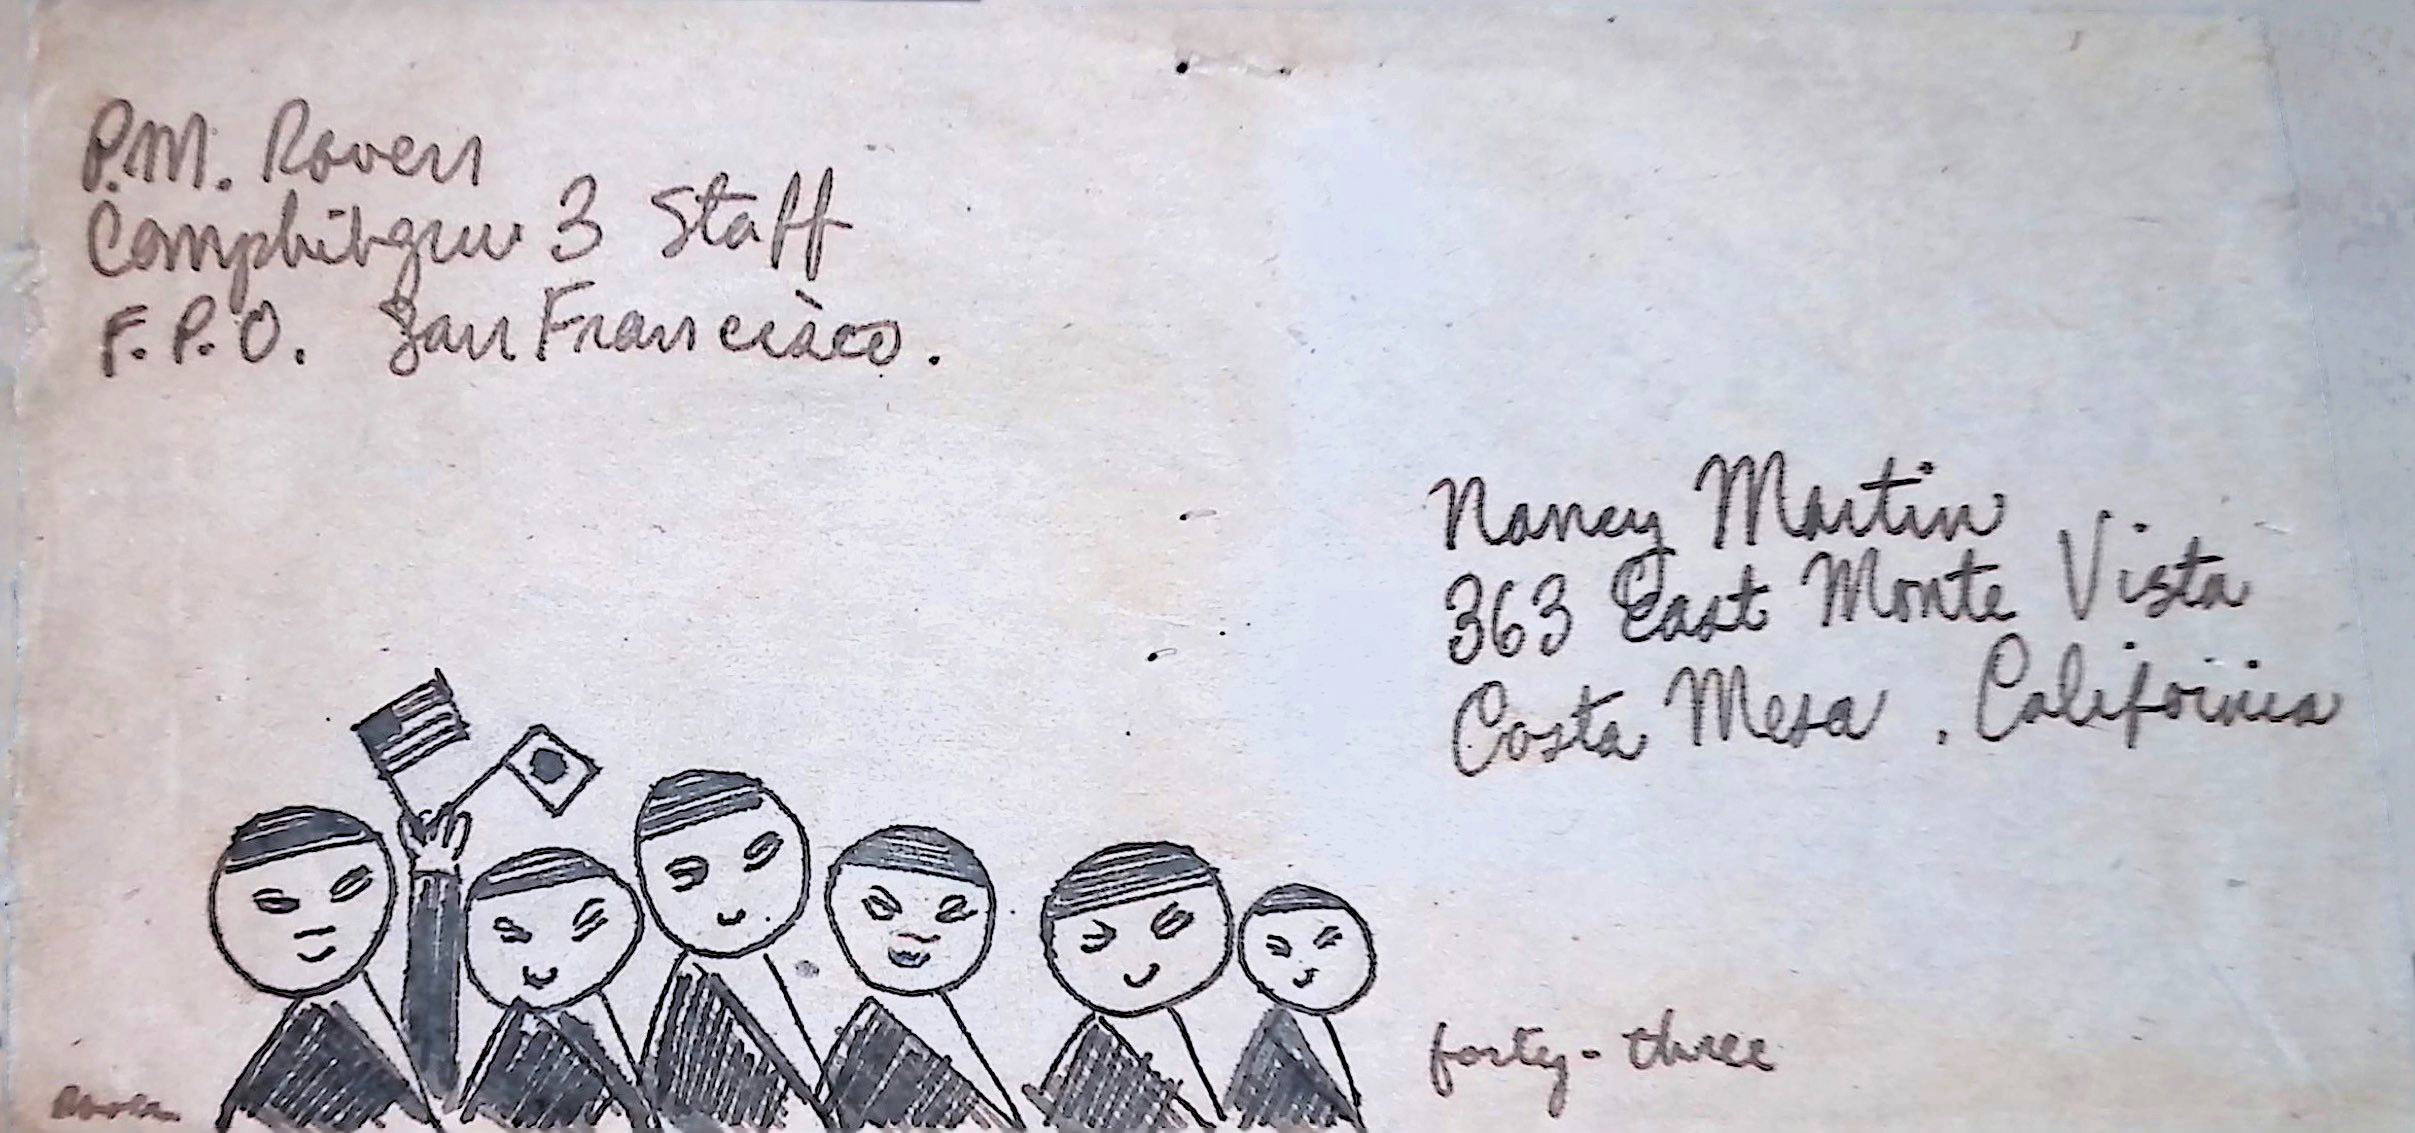 P.M. Roven
Comphibgru 3 Staff
F.P.O. San Francisco.
Nancy Martin
363 East Monte Vista
Costa Mesa, California
forty-three